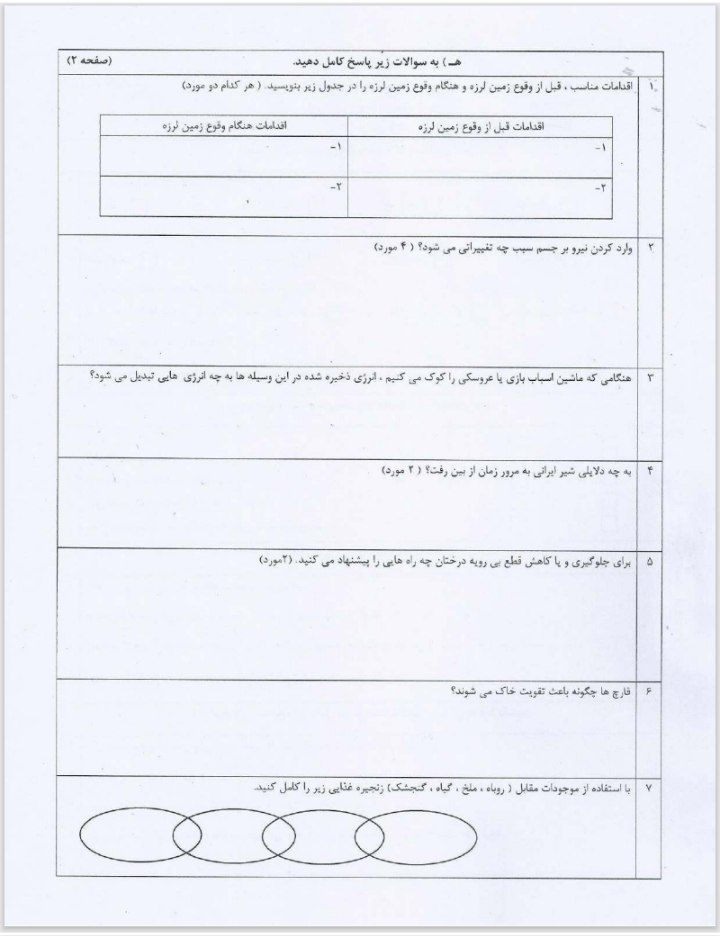 هـ) به سوالات زیر پاسخ کامل دهید. (صفحه ۲)
۱ اقدامات مناسب ، قبل از وقوع زمین لرزه و هنگام وقوع زمین لرزه را در جدول زیر بنویسید. ( هر کدام دو مورد)
اقدامات قبل از وقوع زمین لرزه اقدامات هنگام وقوع زمین لرزه
۱- ۱-
۲- ۲-
۲ وارد کردن نیرو بر جسم سبب چه تغییراتی می شود؟ ( ۴ مورد)
۳ هنگامی که ماشین اسباب بازی یا عروسکی را کوک می کنیم ، انرژی ذخیره شده در این وسیله ها به چه انرژی هایی تبدیل می شود؟
۴ به چه دلایلی شیر ایرانی به مرور زمان از بین رفت؟ ( ۲ مورد)
۵ برای جلوگیری و یا کاهش قطع بی رویه درختان چه راه هایی را پیشنهاد می کنید. (۲مورد)
۶ قارچ ها چگونه باعث تقویت خاک می شوند؟
۷ با استفاده از موجودات مقابل ( روباه ، ملخ ، گیاه ، گنجشک) زنجیره غذایی زیر را کامل کنید.